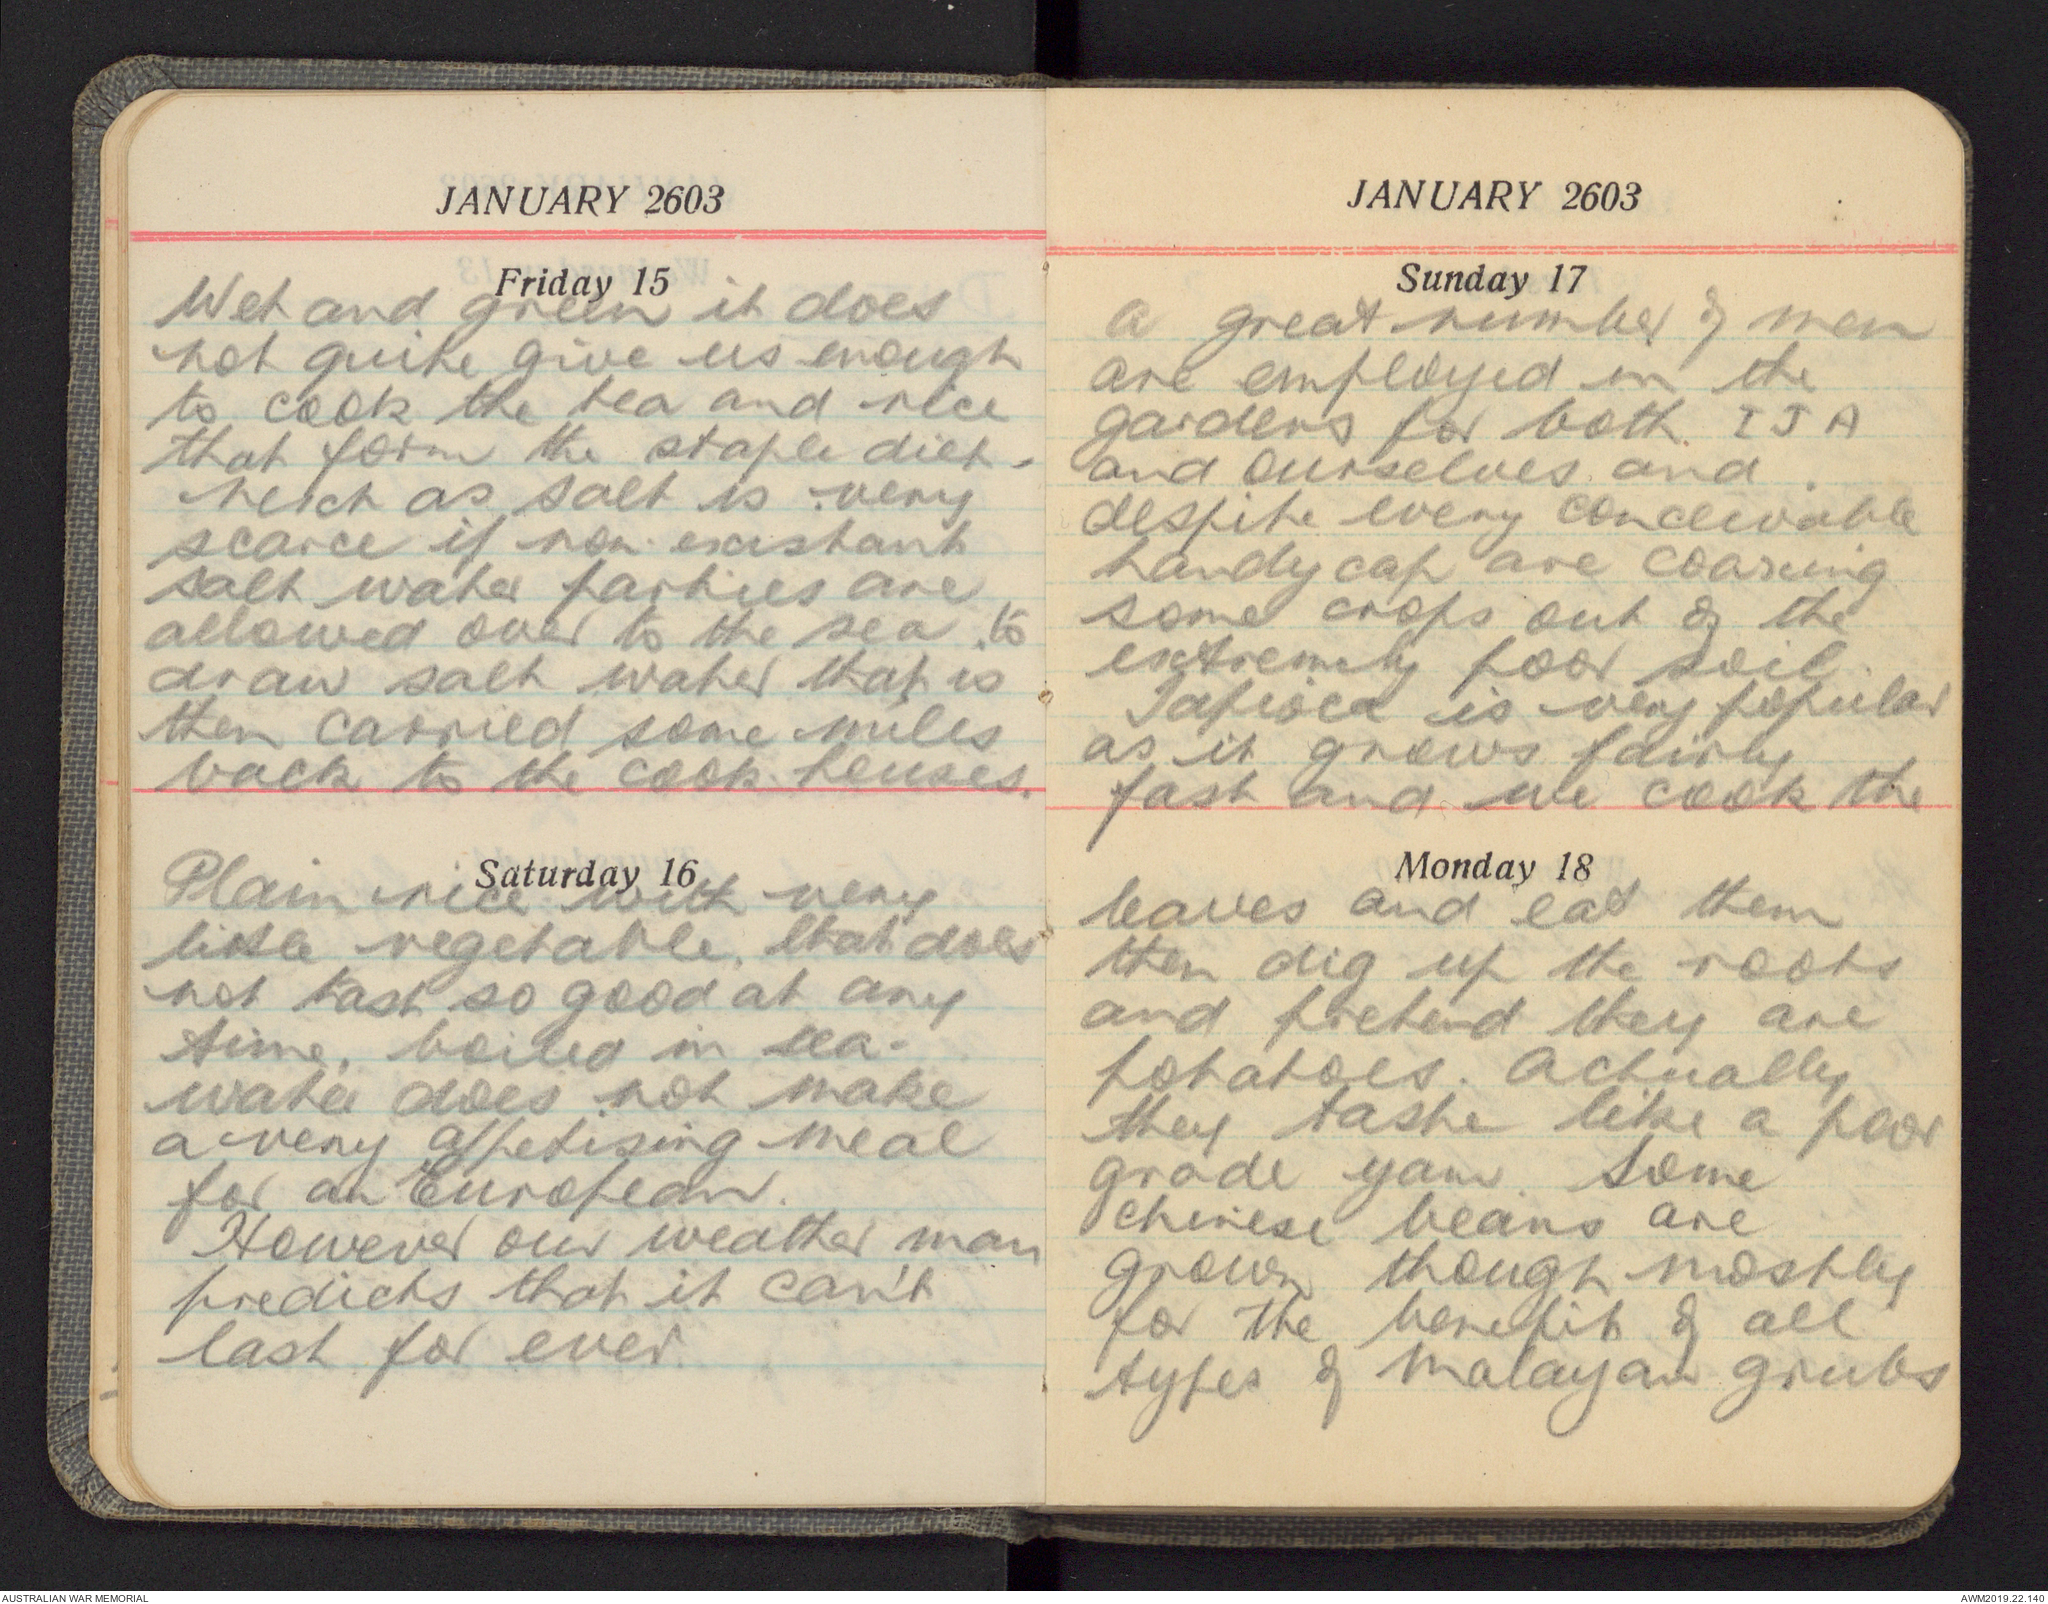 JANUARY 2603
Friday 15
Wet and green it does
not quite give us enough
to cook the tea and rice
that form the staple diet.
as salt is very
scarce if non existant
salt water parties are
allowed over to the sea to
draw salt water that is
then carried some miles
back to the cook houses.
Saturday 16
Plain rice with very
little vegetable, that does
not tast so good at any
time, boiled in sea-
water does not make
a very appetising meal
for an European.
However our weather man
predicts that it can't
last for ever.
JANUARY 2603
Sunday 17
A great number of men
are employed in the
gardens for both I J A
and ourselves and
despite every conceivable
handycap are coaxing
some crops out of the
extremely poor soil.
Tapioca is very popular
as it grows fairly
fast and we cook the
Monday 18
leaves and eat them
then dig up the roots
and pretend they are
potatoes. Actually
they taste like a poor
grade yam. Some
chinese beans are
grown though mostly
for the benefit of all
types of Malayan grubs
AUSTRALIAN WAR MEMORIAL
AWM2019.22.140